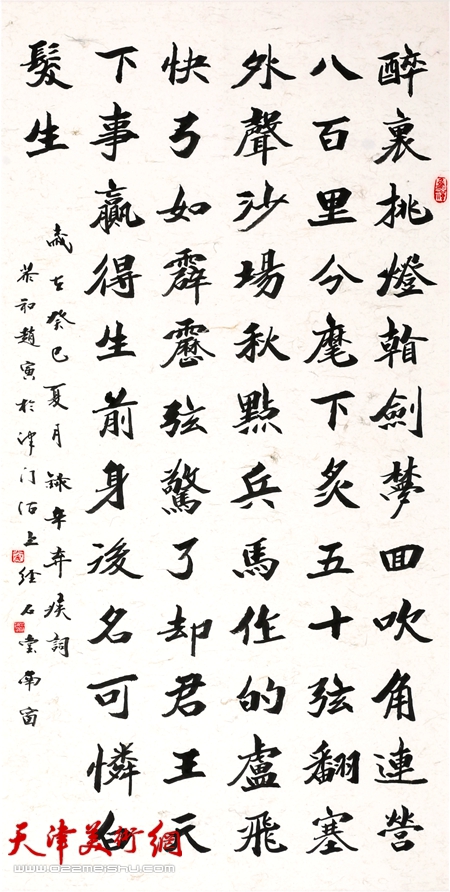 醉裏挑燈㸔劍夢回吹角連營
八百里分麾下炙五十弦翻塞
外聲沙場秋點兵馬作的盧飛
快弓如霹靂弦驚了却君王天
下事贏得生前身後名可憐白
髮生
歲在癸巳夏月録辛弃疾詞
趙寅於津门沽上石堂南窗
天津美術網
www.022meishu.com